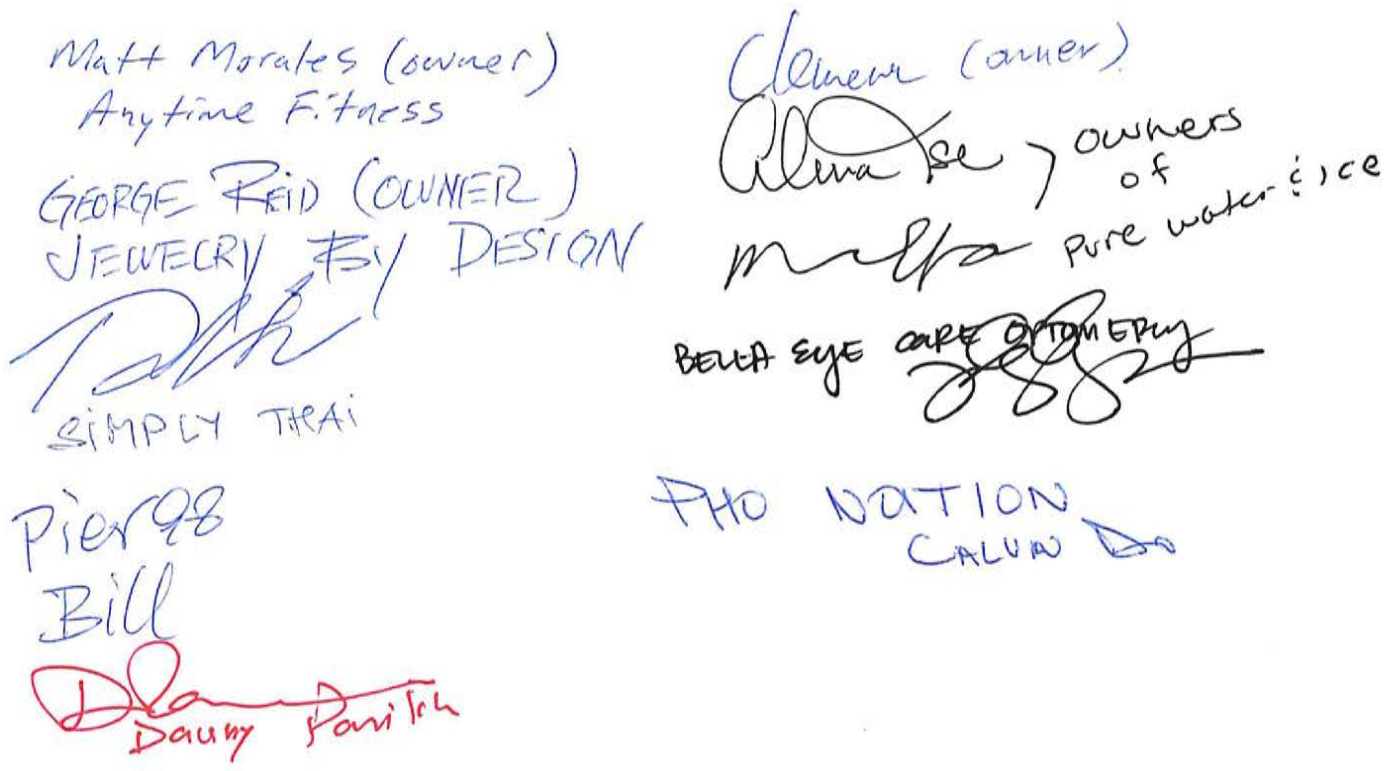 Matt Morales (owner)
Anytime Fitness
GEORGE REID (OWNER)
JEWELRY BY DESIGN
SIMPLY THAI
Pier 98
Bill
Danny
(owner)
owners
of
Pure water & ice
BELLA EyE CARE OPTOMETRY
PHO NATION
CALVIN DO